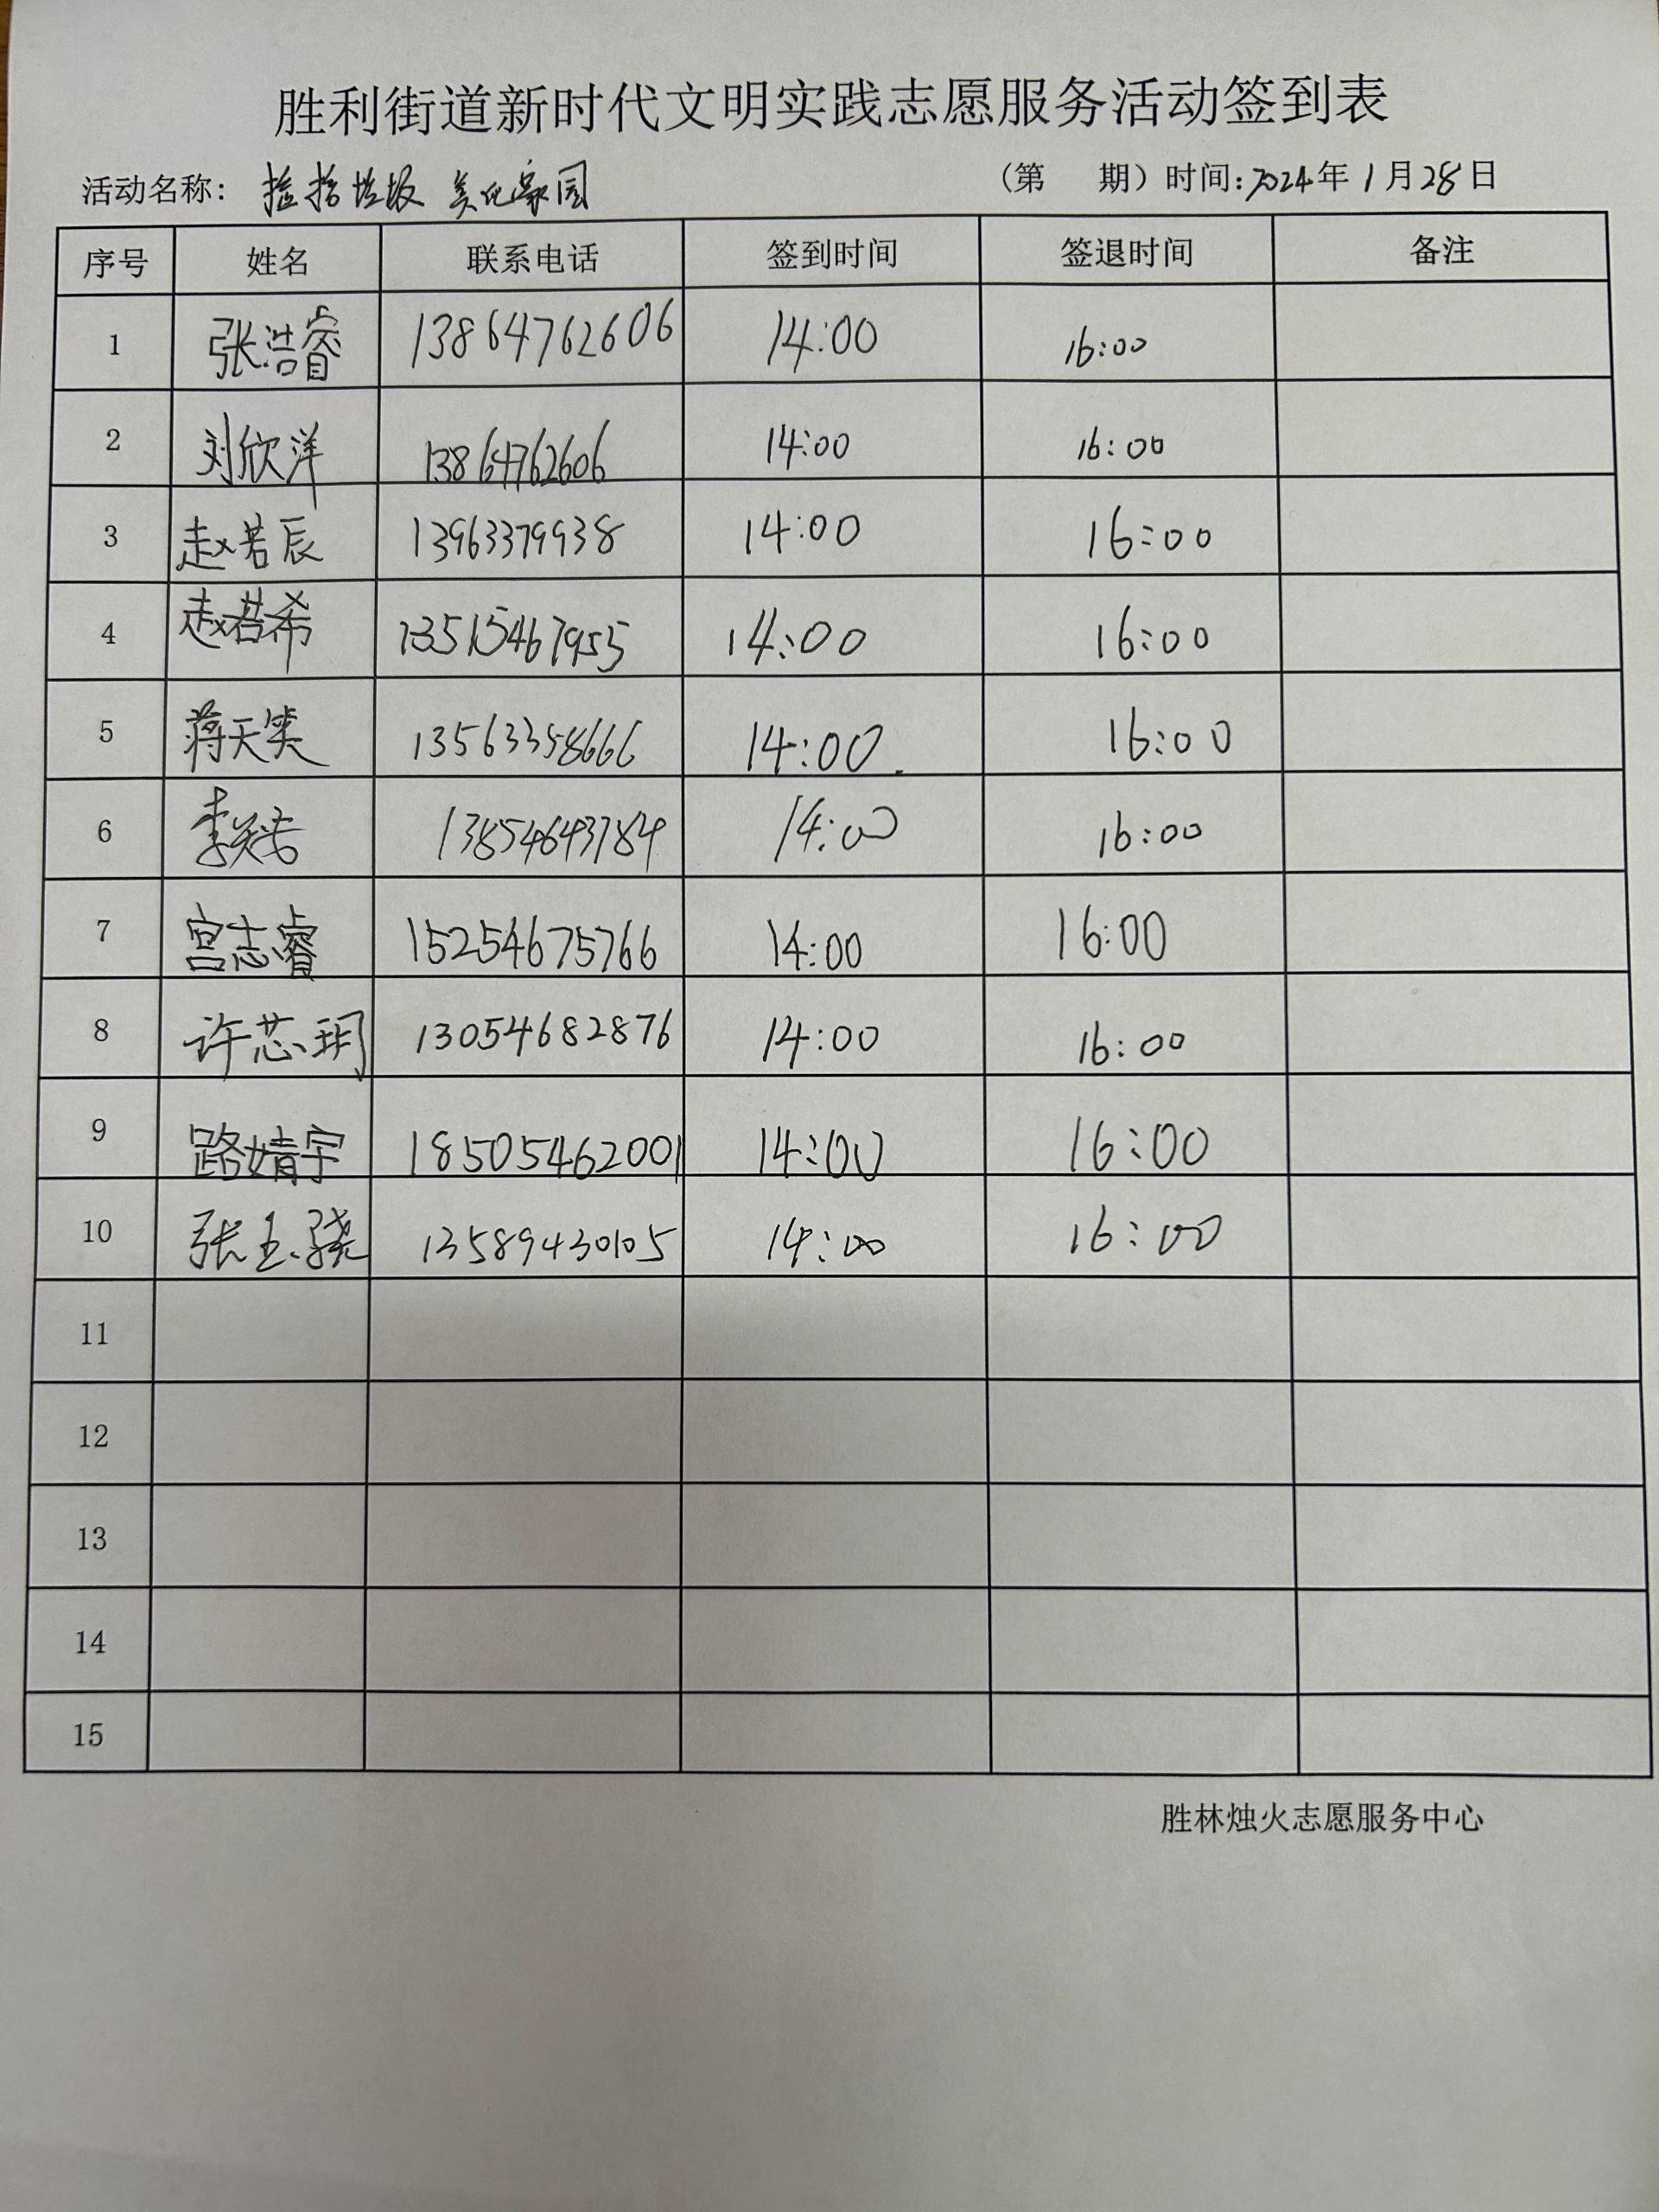 胜利街道新时代文明实践志愿服务活动签到表
活动名称: 捡拾垃圾 美化家园 (第 期) 时间:2024年1月28日
序号 姓名 联系电话 签到时间 签退时间 备注
1 张浩睿 13864762606 14:00 16:00
2 刘欣洋 13864762606 14:00 16:00
3 赵若辰 13963379938 14:00 16:00
4 赵若希 13515467955 14:00 16:00
5 蒋天笑 13563358666 14:00. 16:00
6 李 13854643784 14:00 16:00
7 宫志睿 15254675766 14:00 16:00
8 许芯玥 13054682876 14:00 16:00
9 路婧宇 18505462001 14:00 16:00
10 张玉骁 13589430105 14:00 16:00
11
12
13
14
15
胜林烛火志愿服务中心